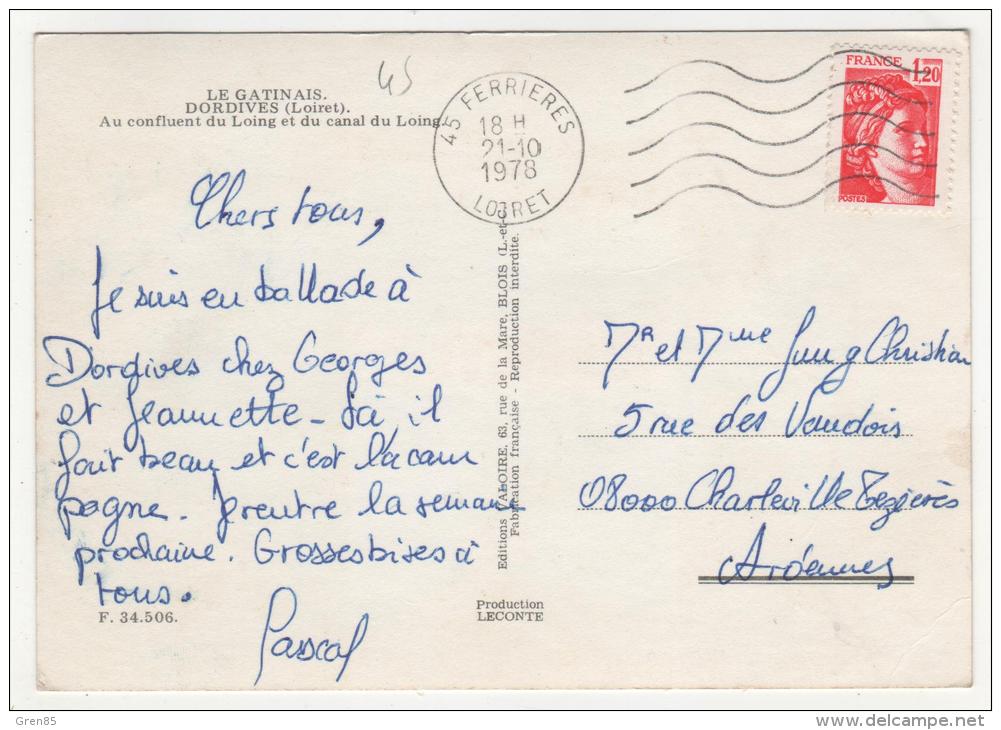 45
LE GATINAIS.
DORDIVES (Loiret).
Au confluent du Loing et du canal du Loing.
45 FERRIERES
18 H
21-10
1978
LOIRET
FRANCE 1,20
POSTES
Chers tous,
Je suis en ballade à
Dordives chez Georges
et Jeannette - Ici il
fait beau et c'est la cam
pagne. Je rentre la semaine
prochaine. Grosses bises à
tous.
Pascal
F. 34.506.
Editions VALOIRE, 63, rue de la Mare, BLOIS (L.-et-
Fabrication française - Reproduction interdite.
Production
LECONTE
Mr et Mme Jung Christian
5 rue des Vaudois
08000 Charleville Mézières
Ardennes
Gren85
www.delcampe.net